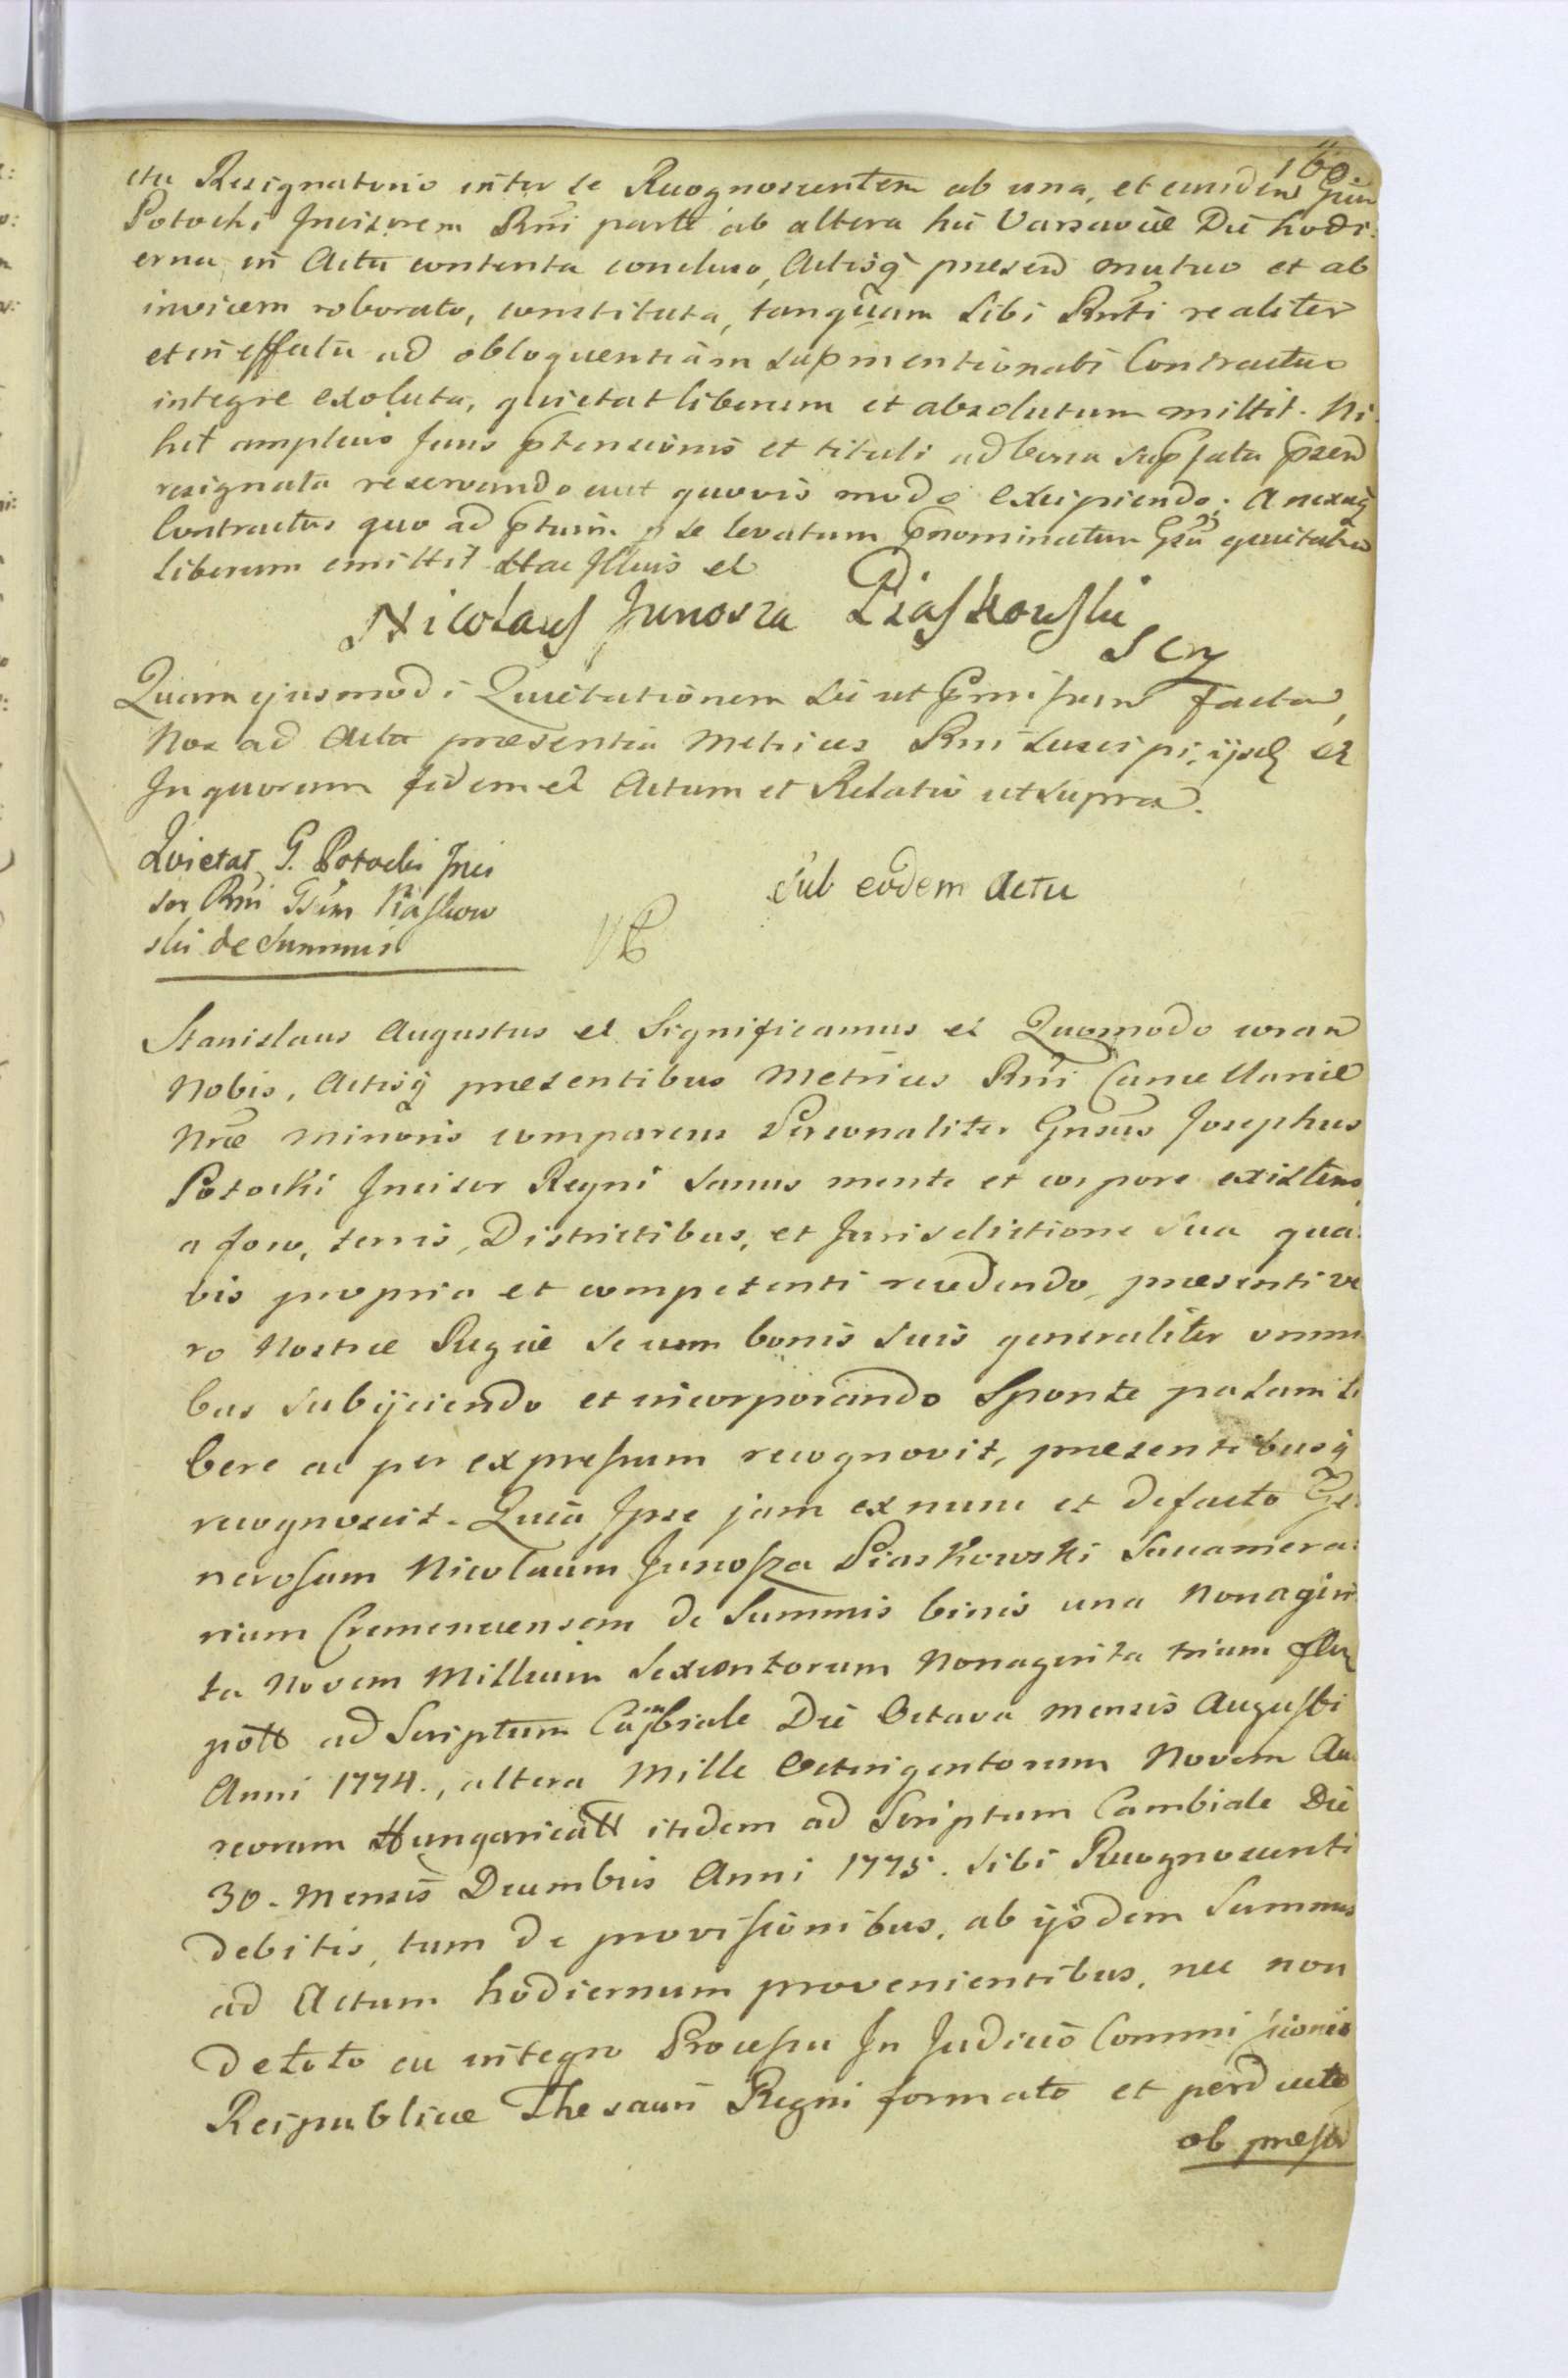 160.
ctu Resignatorio inter se Recognoscentem ab una, et eundem Gsum
Potocki Incisorem Rni parte ab altera hic Varsaviæ Die hodi:
erna in Actu contenta concluso, Actisq præsen mutuo et ab
invicem roborato, constituta, tanquam sibi Rnti realiter
et in effectu ad obloquentiam supmentionati Contractus
integre exoluta, quietat liberum et absolutum mittit. Ni:
hil amplius Juris ptensionis et tituli ad bona supfata psen
resignata reservando aut quovis modo excipiendo;
Contractus quo ad se levatum pnominatum Gsum quietatum
liberum emittit Hac Illius et
Nicolaus Junosza Piaskowski
SCK
Quam ejusmodi Quietationem sic ut pmissum factam,
Nos ad Acta præsentia Metrices Rni suscipi, ijsq et
In quorum fidem et Actum et Relatio ut supra.
Quietat G. Potocki Inci
sor Rni Gsum Piaskow
ski de Summis
Sub eodem Actu
Stanislaus Augustus et Significamus et Quomodo coram
Nobis, Actisq præsentibus Metrices Rni Cancellariæ
Nræ minoris comparens Personaliter Gnsus Josephus
Potocki Incisor Regni sanus mente et corpore existens,
a foro, terris, Districtibus, et Jurisdictione sua qua:
vis propria et competenti recedendo, præsenti ve
ro Nostræ Regiæ se cum bonis suis generaliter omni
bus subijciendo et incorporando Sponte palam li
bere ac per expressum recognovit, præsentibusq
recognoscit. Quia Ipse jam ex nunc et de facto Ge
nerosum Nicolaum Junosza Piaskowski Succamera:
rium Cremenecensem de Summis binis una Nonagin
ta Novem Millium Sexcentorum Nonaginta trium flor
poll ad Scriptum Cambiale Die Octava mensis Augusti
Anni 1774., altera Mille Octingentorum Novem Au
reorum Hungarical itidem ad Scriptum Cambiale Die
30. Mensis Decembris Anni 1775. sibi Recognoscenti
debitis, tum de provisionibus, ab ijsdem Summis
ad Actum hodiernum provenientibus, nec non
de toto ac integro Processu In Judicio Commissionis
Reipublicæ Thesauri Regni formato et perducto
ob præsti